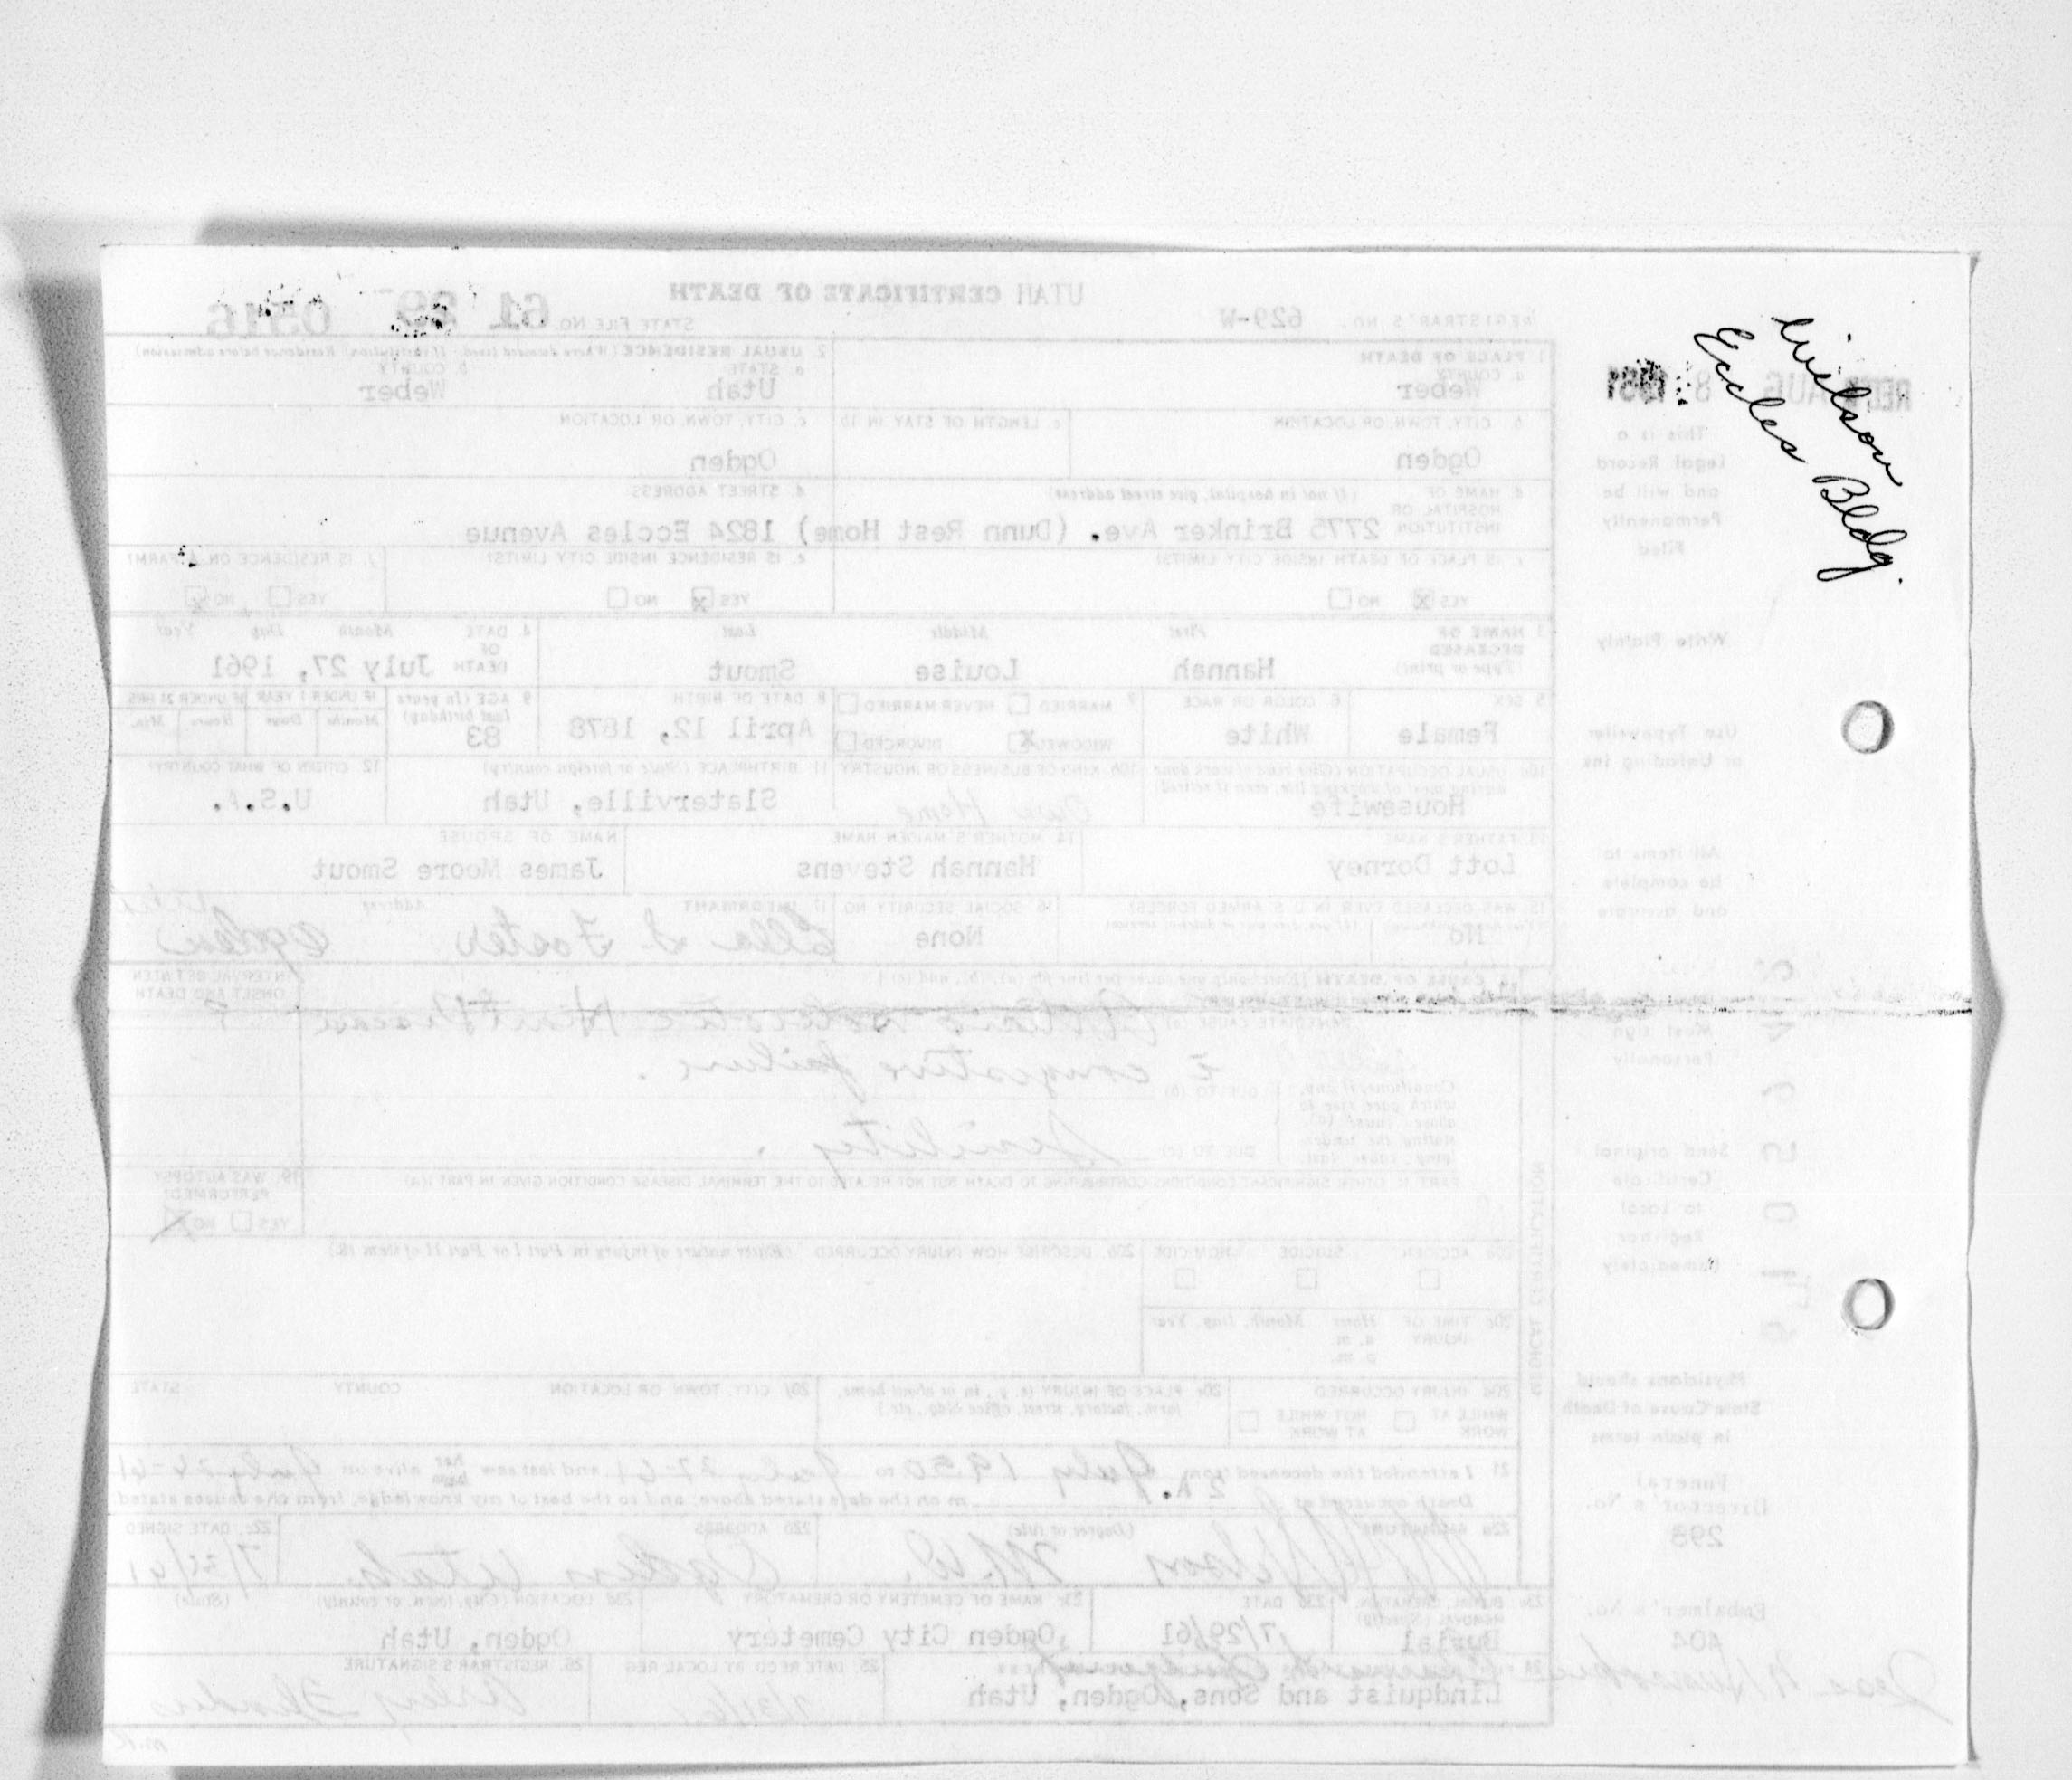 Wilson
Eccles Bldg.
UTAH CERTIFICATE OF DEATH
REGISTRAR'S NO. 629-W
STATE FILE NO. 61 29 0516
REC'D AUG 8 1961
This is a
Legal Record
and will be
Permanently
Filed
Write Plainly
1. PLACE OF DEATH
a. COUNTY
Weber
2. USUAL RESIDENCE (Where deceased lived. If institution: Residence before admission)
a. STATE
Utah
b. COUNTY
Weber
b. CITY, TOWN, OR LOCATION
Ogden
c. LENGTH OF STAY IN 1b
c. CITY, TOWN, OR LOCATION
Ogden
d. NAME OF HOSPITAL OR INSTITUTION (If not in hospital, give street address)
2775 Brinker Ave. (Dunn Rest Home)
d. STREET ADDRESS
1824 Eccles Avenue
e. IS PLACE OF DEATH INSIDE CITY LIMITS?
YES X NO
e. IS RESIDENCE INSIDE CITY LIMITS?
YES X NO
f. IS RESIDENCE ON A FARM?
YES NO X
3. NAME OF DECEASED
(Type or print)
First Middle Last
Hannah Louise Smout
4. DATE OF DEATH
Month Day Year
July 27, 1961
5. SEX
Female
6. COLOR OR RACE
White
7. MARRIED NEVER MARRIED
WIDOWED X DIVORCED
8. DATE OF BIRTH
April 12, 1878
9. AGE (In years last birthday)
83
IF UNDER 1 YEAR IF UNDER 24 HRS.
Months Days Hours Min.
10a. USUAL OCCUPATION (Give kind of work done during most of working life, even if retired)
Housewife
10b. KIND OF BUSINESS OR INDUSTRY
Own Home
11. BIRTHPLACE (State or foreign country)
Slaterville, Utah
12. CITIZEN OF WHAT COUNTRY?
U.S.A.
13. FATHER'S NAME
Lott Dorney
14. MOTHER'S MAIDEN NAME
Hannah Stevens
NAME OF SPOUSE
James Moore Smout
15. WAS DECEASED EVER IN U.S. ARMED FORCES?
No
16. SOCIAL SECURITY NO.
None
17. INFORMANT Address
Ella S. Foster Ogden Utah
18. CAUSE OF DEATH [Enter only one cause per line for (a), (b), and (c).]
INTERVAL BETWEEN ONSET AND DEATH
IMMEDIATE CAUSE (a)
Heart Disease ?
c̄ congestive failure.
Conditions, if any, which gave rise to above cause (a), stating the underlying cause last.
DUE TO (b)
DUE TO (c)
Senility.
PART II. OTHER SIGNIFICANT CONDITIONS CONTRIBUTING TO DEATH BUT NOT RELATED TO THE TERMINAL DISEASE CONDITION GIVEN IN PART I(a)
19. WAS AUTOPSY PERFORMED?
YES NO X
20a. ACCIDENT SUICIDE HOMICIDE
20b. DESCRIBE HOW INJURY OCCURRED. (Enter nature of injury in Part I or Part II of item 18.)
20c. TIME OF INJURY Hour Month, Day, Year
a. m.
p. m.
20d. INJURY OCCURRED
WHILE AT WORK NOT WHILE AT WORK
20e. PLACE OF INJURY (e. g., in or about home, farm, factory, street, office bldg., etc.)
20f. CITY, TOWN, OR LOCATION COUNTY STATE
21. I attended the deceased from July 1950 to July 27-61 and last saw her him alive on July 24-61
Death occurred at 2 A. m on the date stated above; and to the best of my knowledge, from the causes stated.
22a. SIGNATURE (Degree or title)
Wilson M.D.
22b. ADDRESS
Ogden Utah.
22c. DATE SIGNED
23a. BURIAL, CREMATION, REMOVAL (Specify)
Burial
23b. DATE
7/29/61
23c. NAME OF CEMETERY OR CREMATORY
Ogden City Cemetery
23d. LOCATION (City, town, or county) (State)
Ogden, Utah
Lindquist and Sons, Ogden, Utah
25. DATE REC'D BY LOCAL REG.
7/31/61
26. REGISTRAR'S SIGNATURE
MEDICAL CERTIFICATION
Use Typewriter
or Unfading ink
All items to
be complete
and accurate
Must sign
Personally
Send original
Certificate
to Local
Registrar
Immediately
Physicians should
State Cause of Death
in plain terms
Funeral
Director's No.
298
Embalmer's No.
404